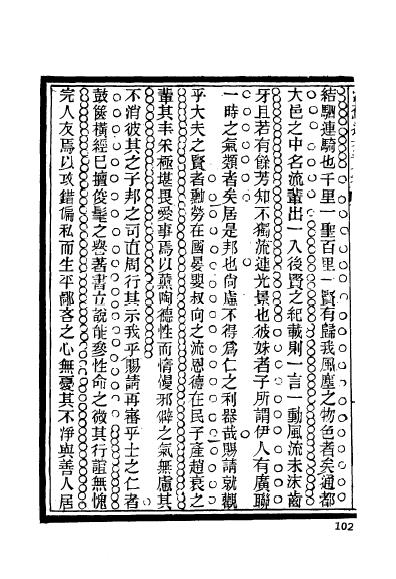 結駟連騎也千里一聖百里一賢有歸我風塵之物色者矣通都
大邑之中名流輩出一入後賢之紀載則一言一動風流未沫齒
牙且若有餘芳知不獨流連光景也彼姝者子所謂伊人有廣聯
一時之氣類者矣居是邦也尙虛不得爲仁之利器哉賜請就觀
乎大夫之賢者勳勞在國晏嬰叔向之流恩德在民子產趙衰之
輩其丰釆極堪畏愛事焉以薰陶德性而情慢邪僻之氣無慮其
不消彼其之子邦之司直周行其示我乎賜請再審乎士之仁者
鼓篋橫經已擅俊髦之譽著書立說能參性命之微其行誼無愧
完人友焉以攻錯偏私而生平鄙吝之心無憂其不淨與善人居
102